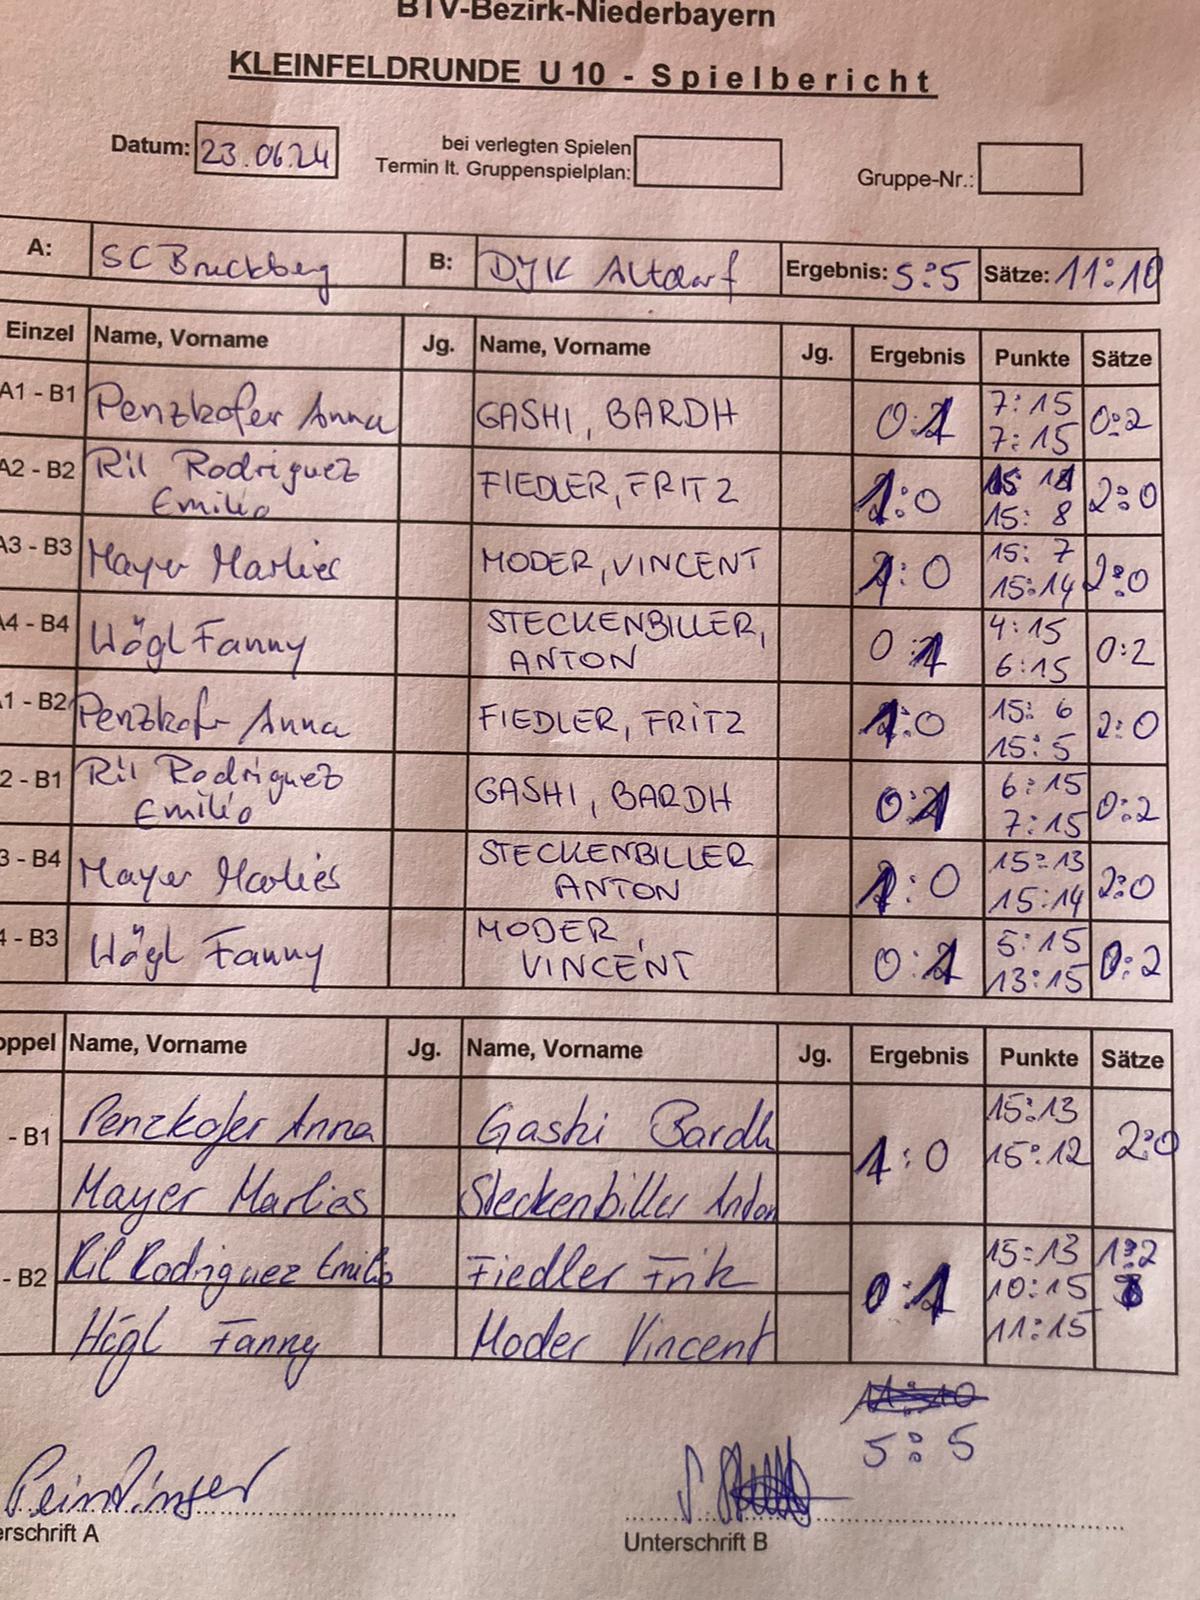 BTV-Bezirk-Niederbayern
KLEINFELDRUNDE U 10 - Spielbericht
Datum: 23.06.24 bei verlegten Spielen Termin lt. Gruppenspielplan: Gruppe-Nr.:
A: SC Bruckberg B: DJK Altdorf Ergebnis: 5:5 Sätze: 11:10
Einzel Name, Vorname Jg. Name, Vorname Jg. Ergebnis Punkte Sätze
A1 - B1 Penzkofer Anna GASHI, BARDH 0:1 7:15 0:2
7:15
A2 - B2 Ril Rodriguez FIEDLER, FRITZ 1:0 15 2:0
Emilio 15: 8
A3 - B3 Mayer Marlies MODER, VINCENT 1:0 15: 7 2:0
15:14
A4 - B4 Högl Fanny STECKENBILLER, 0:1 4:15 0:2
ANTON 6:15
1 - B2 Penzkofer Anna FIEDLER, FRITZ 1:0 15: 6 2:0
15: 5
2 - B1 Ril Rodriguez GASHI, BARDH 0:1 6:15 0:2
Emilio 7:15
3 - B4 Mayer Marlies STECKENBILLER 1:0 15:13 2:0
ANTON 15:14
4 - B3 Högl Fanny MODER, 0:1 5:15 0:2
VINCENT 13:15
oppel Name, Vorname Jg. Name, Vorname Jg. Ergebnis Punkte Sätze
- B1 Penzkofer Anna Gashi Bardh 1:0 15:13 2:0
15:12
Mayer Marlies Steckenbiller Anton
- B2 Ril Rodriguez Emilio Fiedler Frik 0:1 15:13 1:2
10:15
Högl Fanny Moder Vincent 11:15
11:10
5:5
erschrift A
Unterschrift B